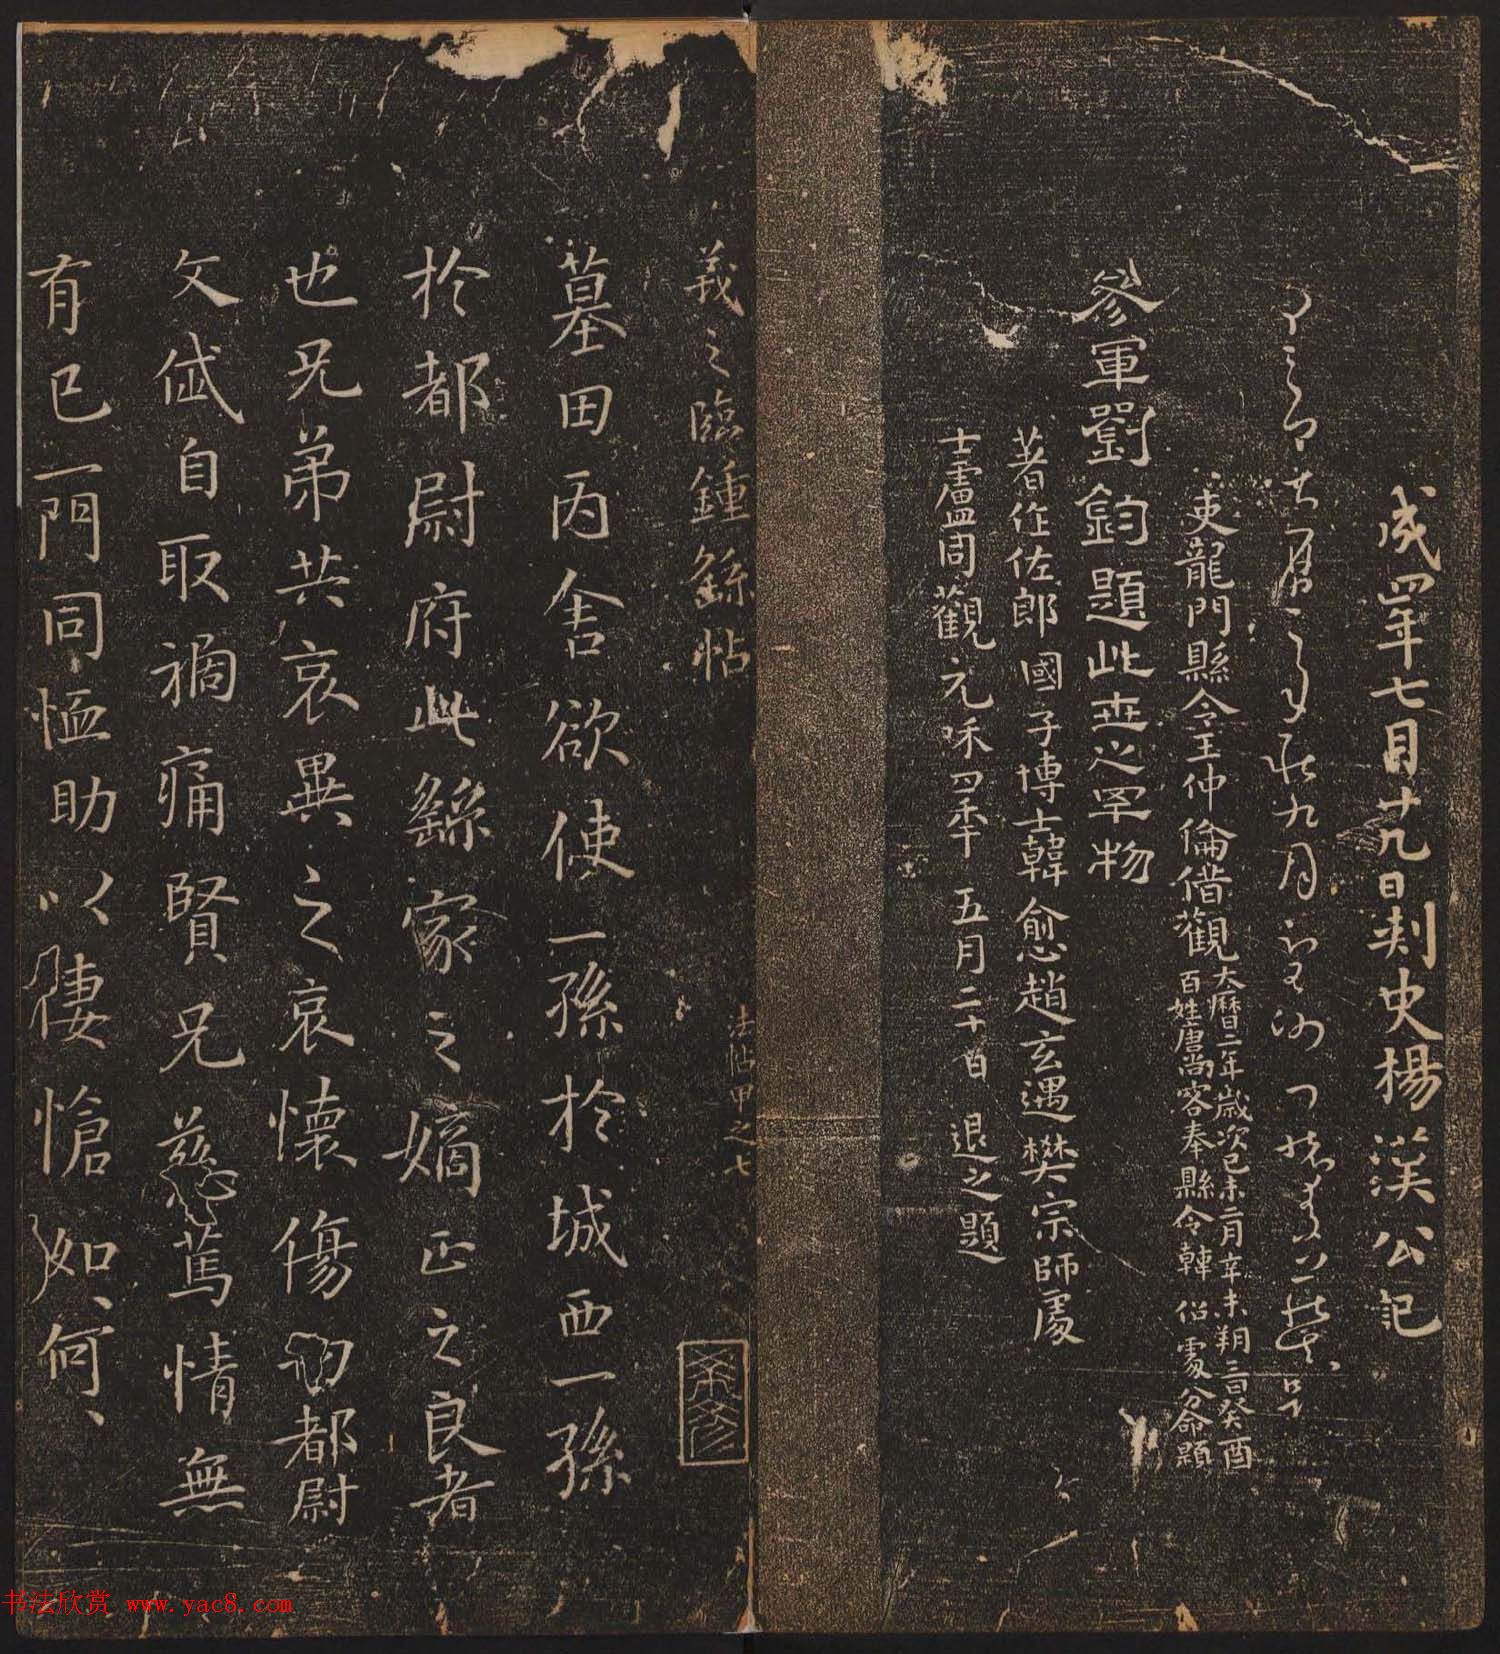 成四年七月廿九日刺史楊漢公記
九月
吏龍門縣令王仲倫借觀
大曆二年歲次己未二月辛未朔三日癸酉
百姓唐尚客奉縣令韓 俗處分命題
參軍劉鈞題此世之罕物
著作佐郎國子博士韓愈趙玄遇樊宗師處
士盧同觀元和四年五月二十日 退之題
羲之臨鍾繇帖
法帖甲之七
墓田丙舍欲使一孫於城西一孫
於都尉府此繇家之嫡正之良者
也兄弟共哀異之哀懷傷切都尉
文岱自取禍痛賢兄慈篤情無
有已一門同恤助以悽愴如何
书法欣赏 www.yac8.com